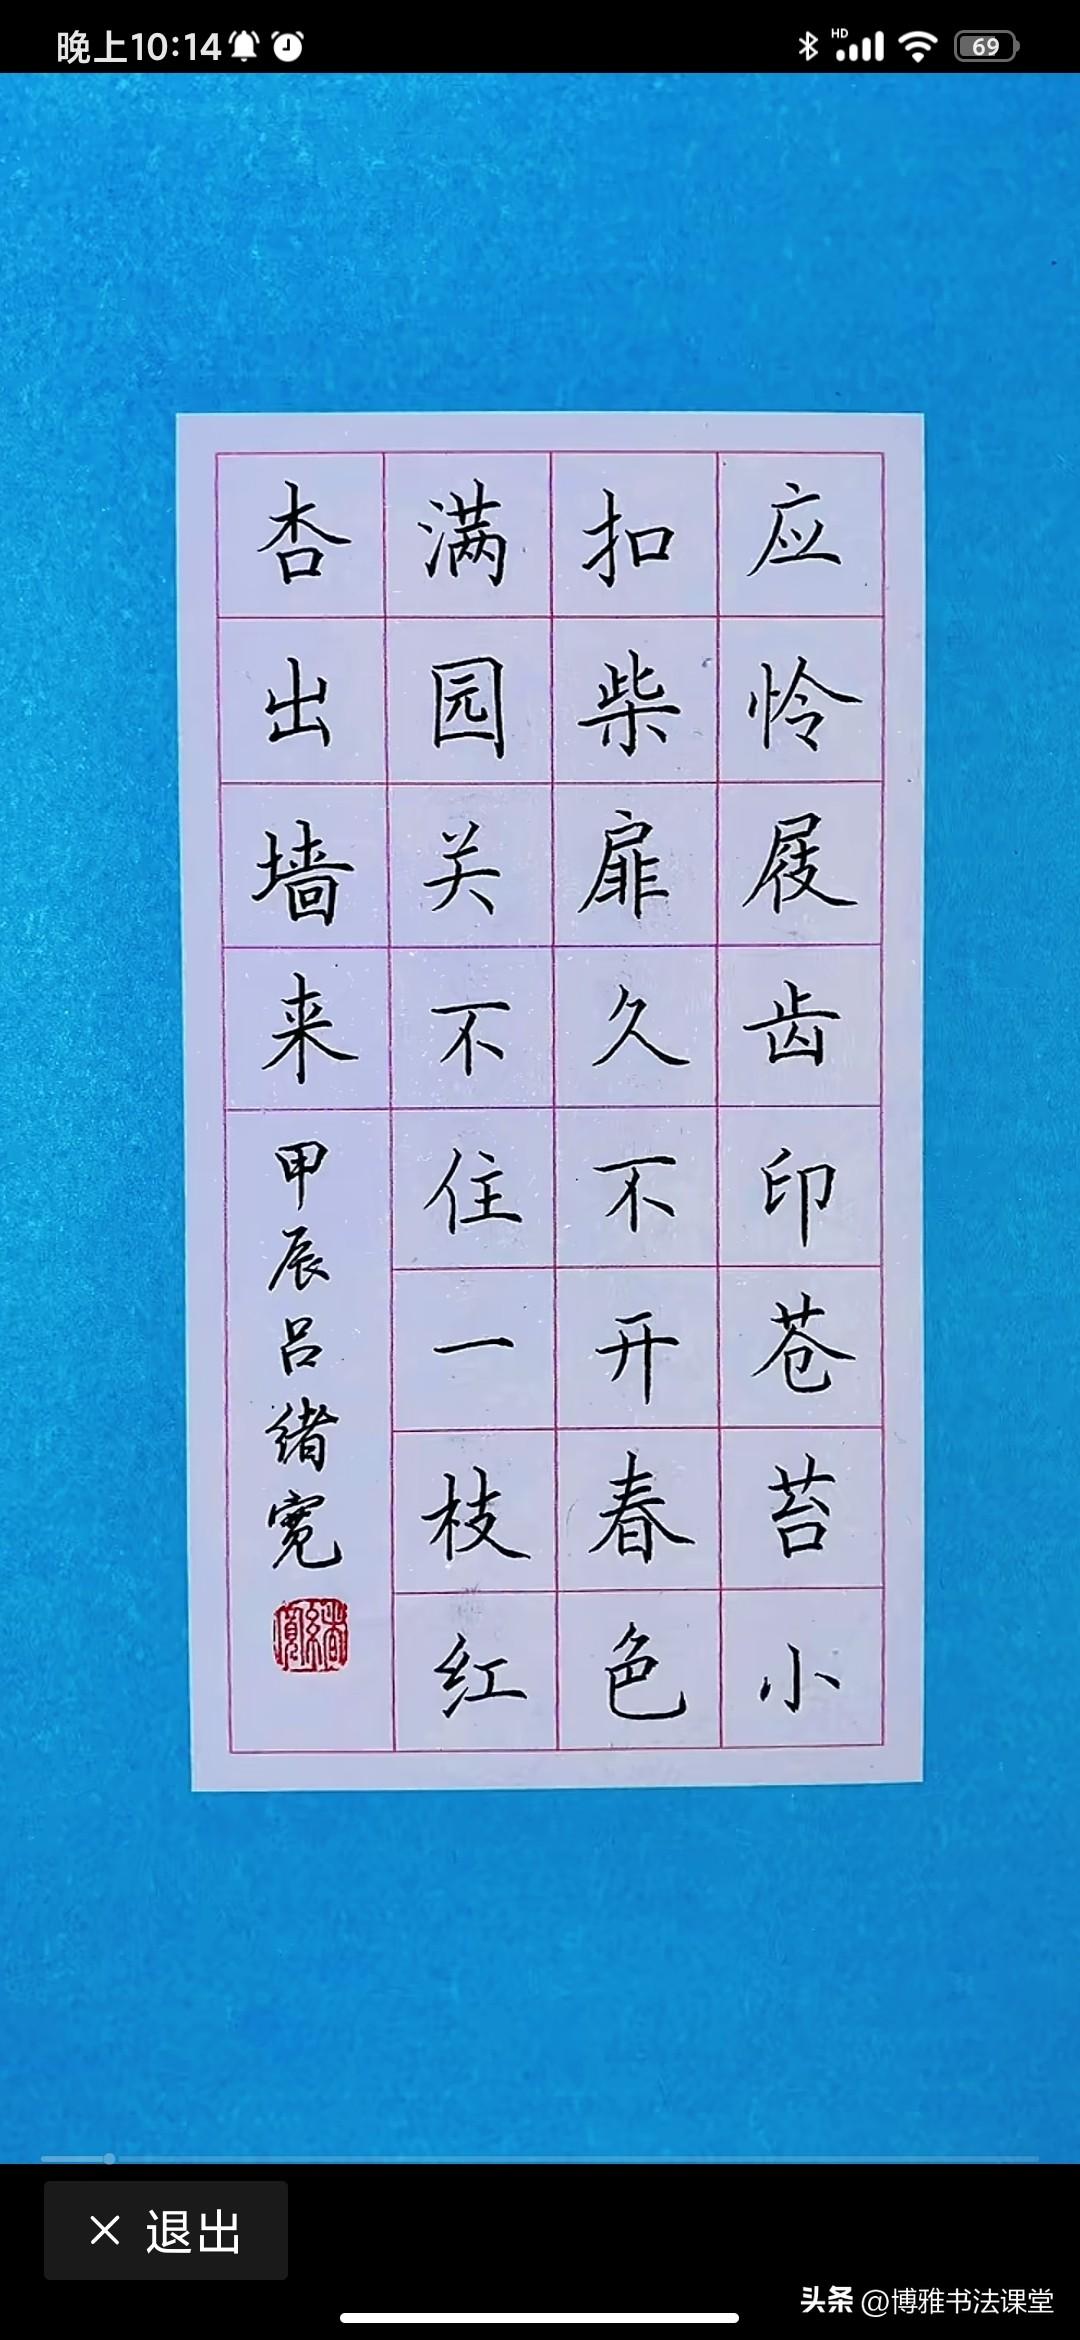 晚上10:14
HD
69
应怜屐齿印苍苔小
扣柴扉久不开春色
满园关不住一枝红
杏出墙来
甲辰吕绪宽
退出
头条 @博雅书法课堂